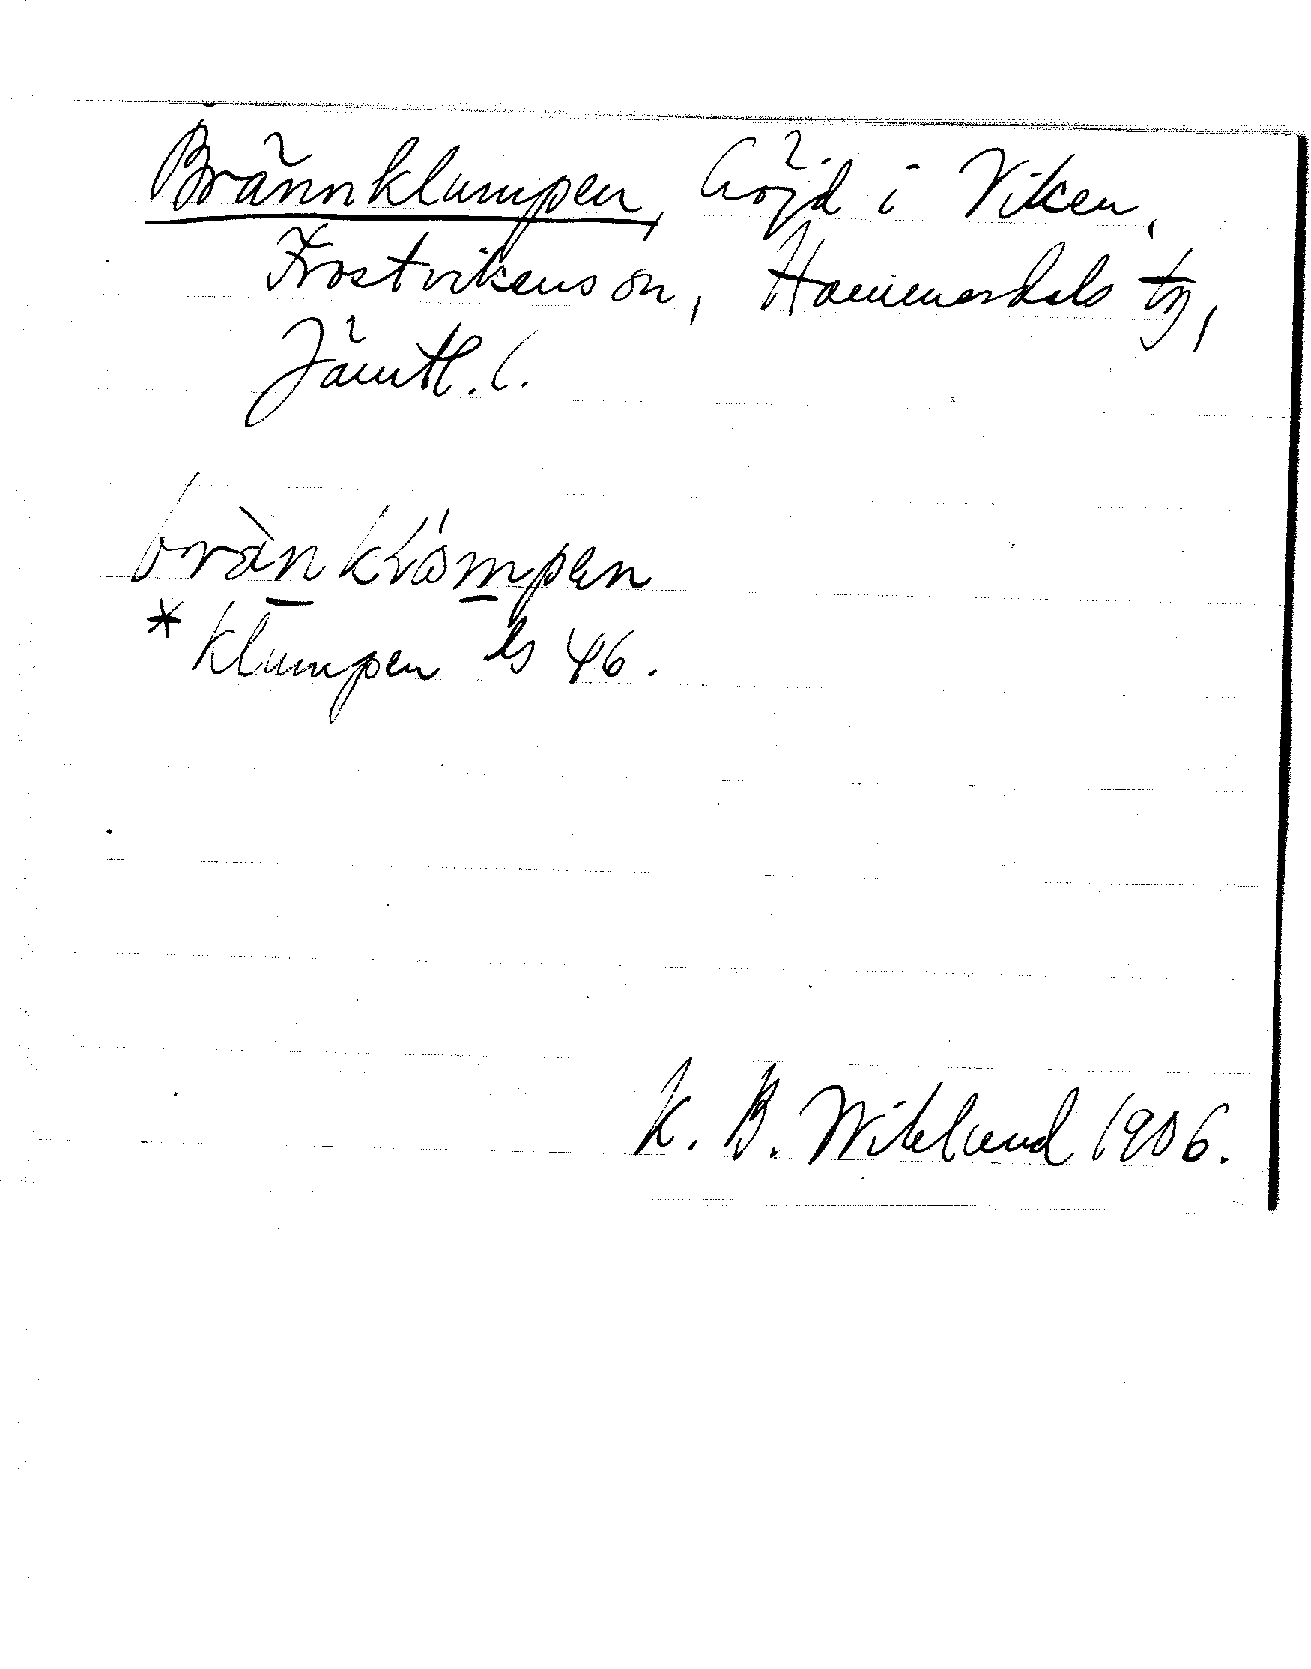 Brännklumpen, höjd i Viken,
Frostvikens sn, Hammerdals tg,
Jämtl. l.
bràn klómpen
* klumpen ls 46.
K. B. Wiklund 1906.